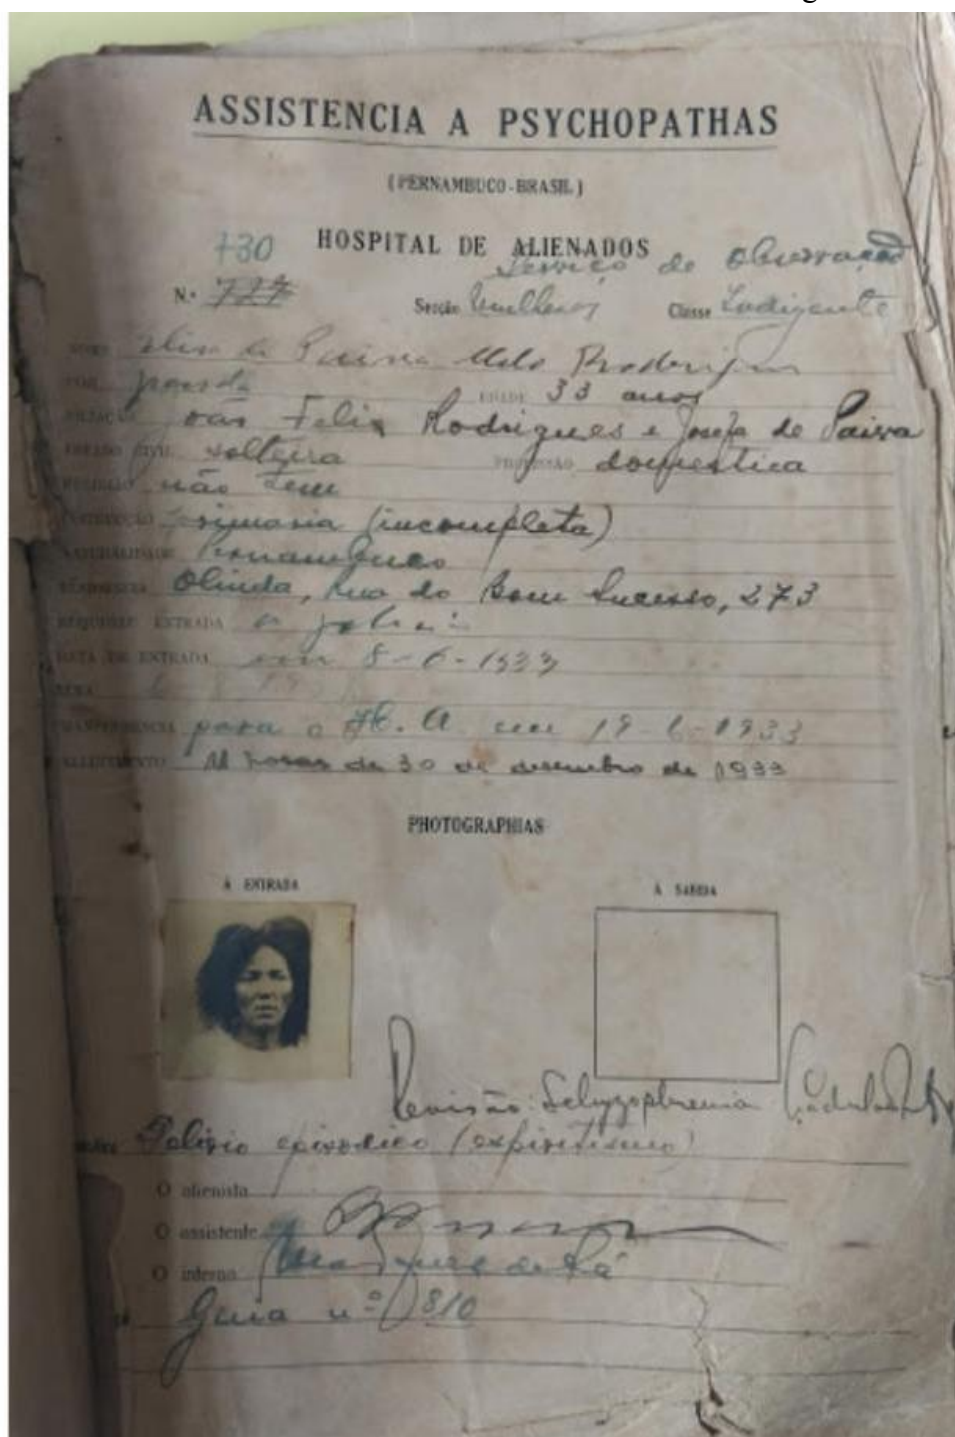 ASSISTENCIA A PSYCHOPATHAS
(PERNAMBUCO-BRASIL)
HOSPITAL DE ALIENADOS
730 Serviço de Observação
N.º 727 Secção Mulheres Classe Indigente
de Paiva Melo Rodrigues
parda IDADE 33 annos
FILIAÇÃO João Felix Rodrigues e Josefa de Paiva
ESTADO CIVIL solteira PROFISSÃO domestica
não tem
INSTRUCÇÃO primaria (incompleta)
NATURALIDADE Pernambuco
RESIDENCIA Olinda, Rua do Bom Sucesso, 273
REQUEREU ENTRADA a policia
DATA DE ENTRADA em 8-6-1933
TRANSFERENCIA para o H. A. em 19-6-1933
FALLECIMENTO 11 horas de 30 de desembro de 1933
PHOTOGRAPHIAS
Á ENTRADA Á SAHIDA
Revisão: Schyzophrenia
Delirio episodico (espiritismo)
O alienista
O assistente
O interno de Sá
Guia nº 810